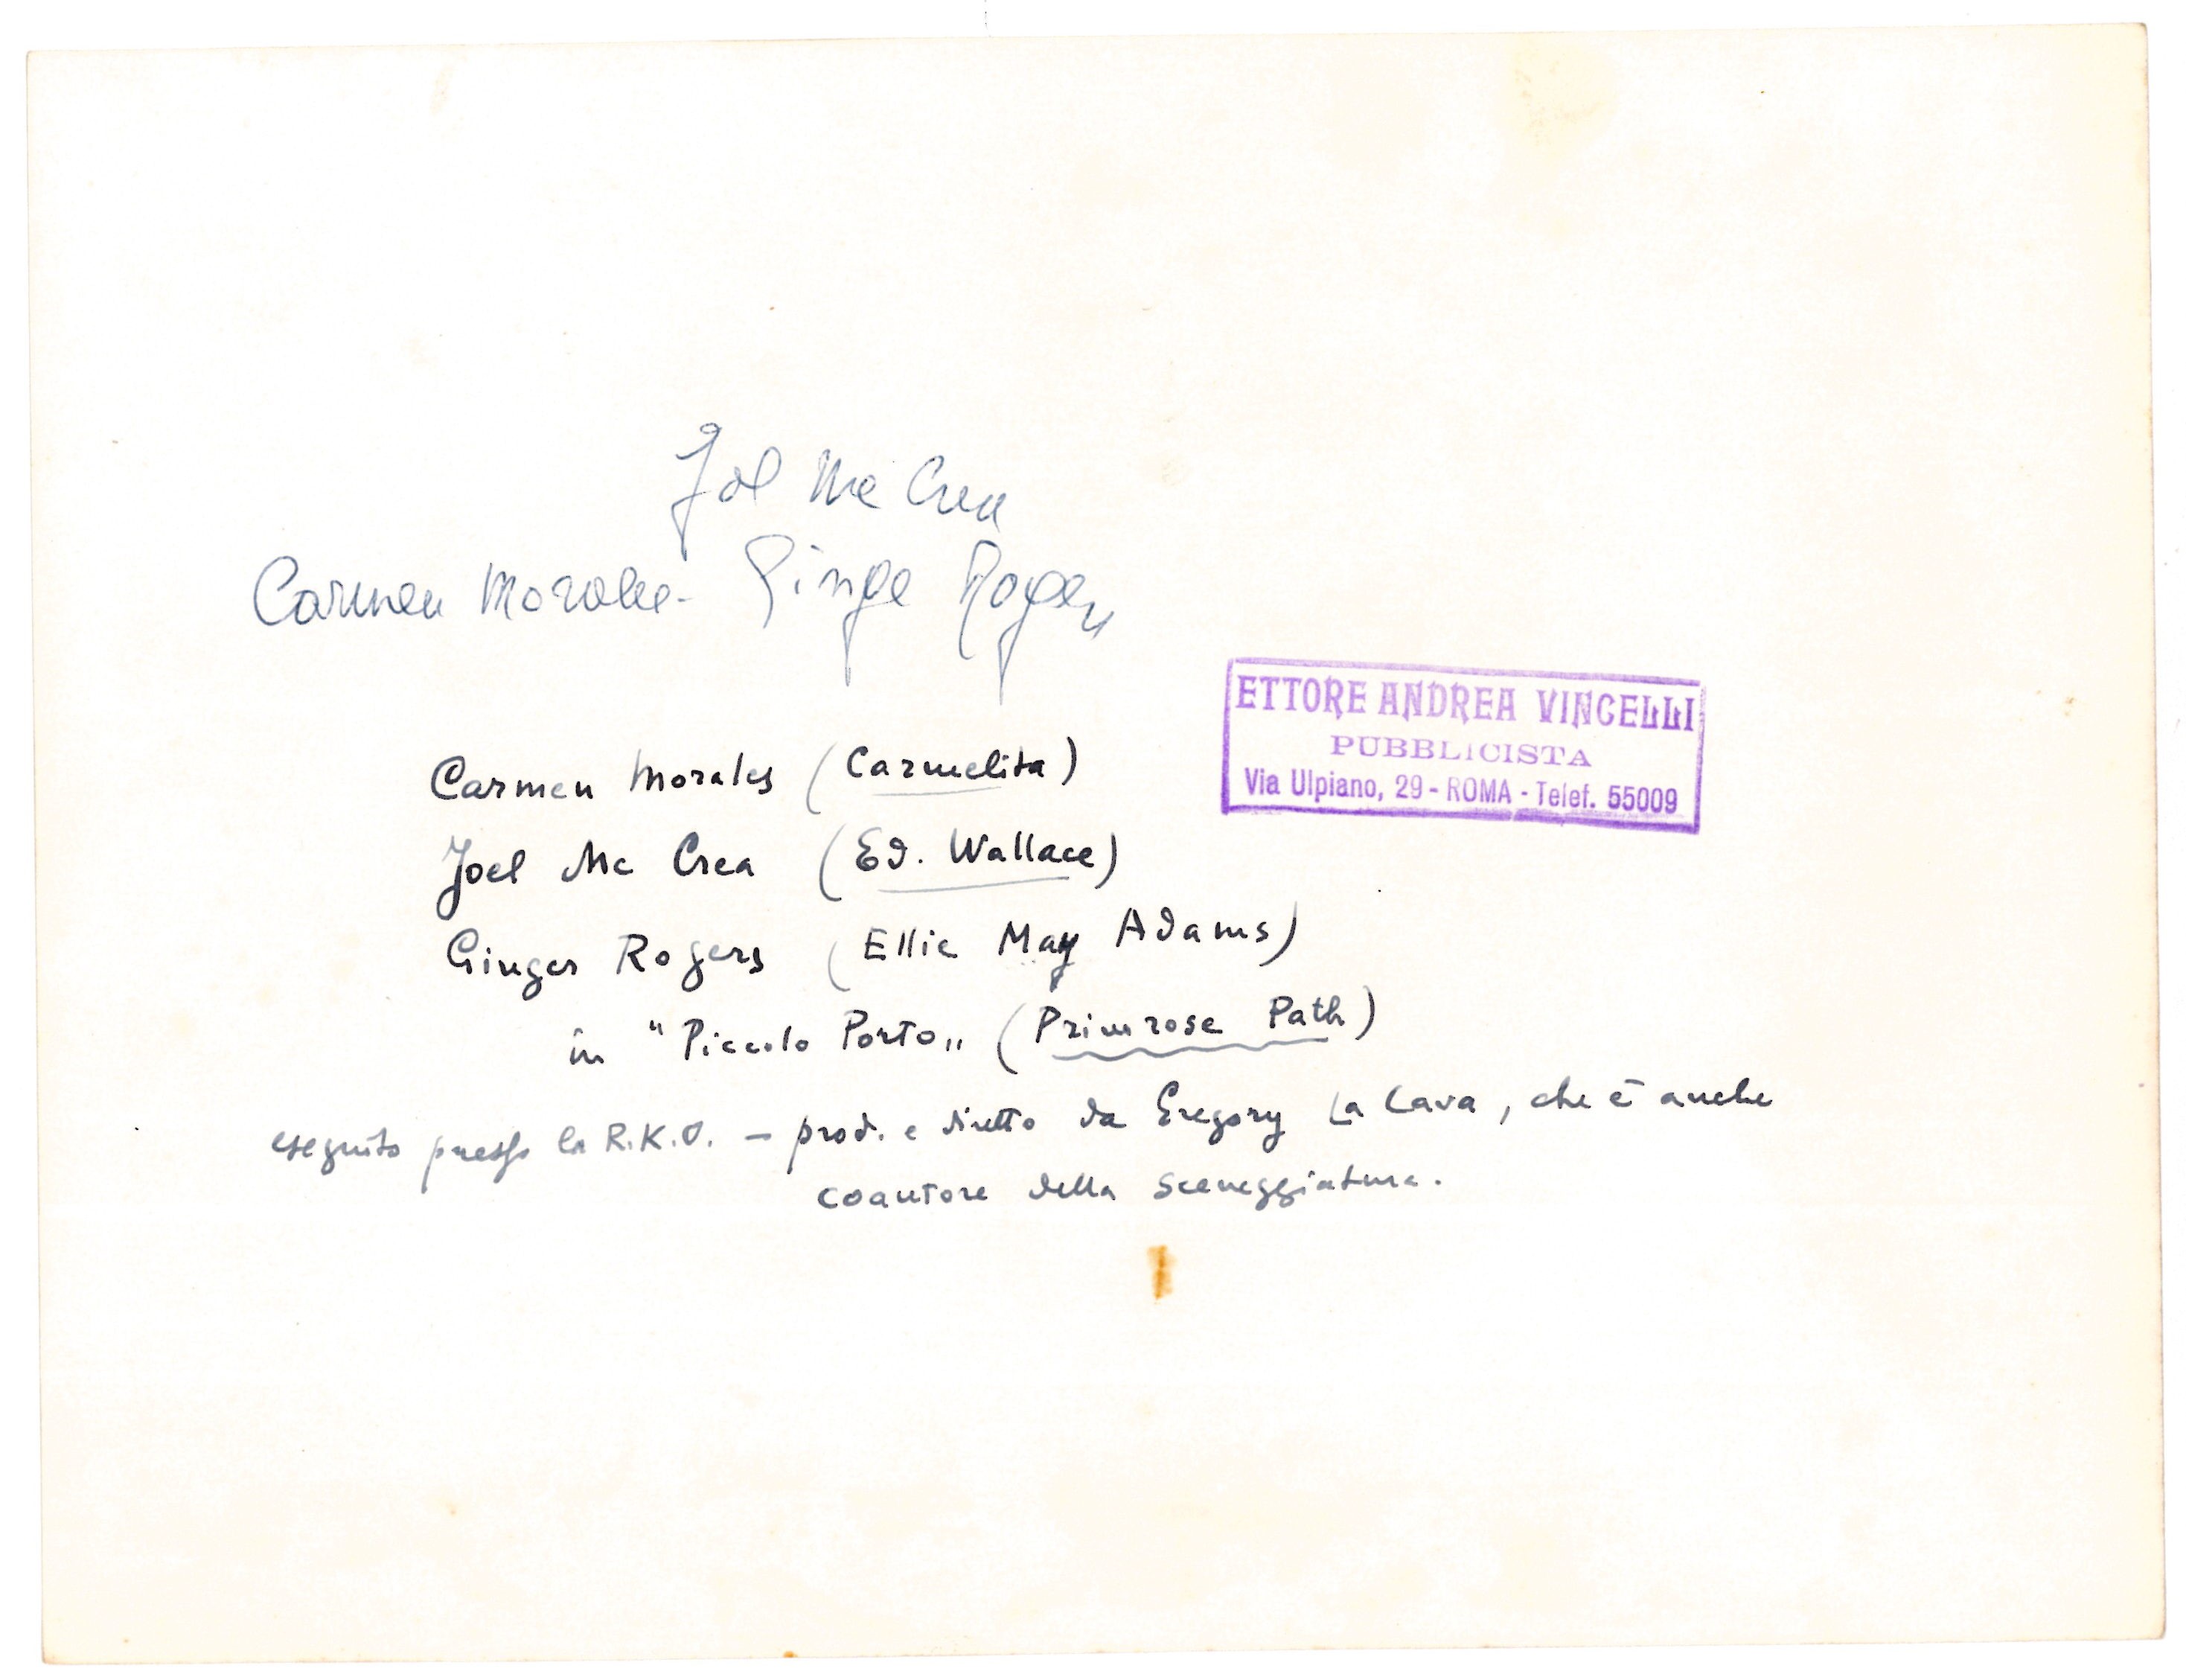 Joel Mc Crea
Carmen Morales - Ginge Rogers
ETTORE ANDREA VINCELLI
PUBBLICISTA
Via Ulpiano, 29 - ROMA - Telef. 55009
Carmen Morales (Carmelita)
Joel Mc Crea (Ed. Wallace)
Ginger Rogers (Ellie May Adams)
in "Piccolo Porto" (Primrose Path)
eseguito presso la R.K.O. - prod. e diretto da Gregory La Cava, che è anche
coautore della sceneggiatura.